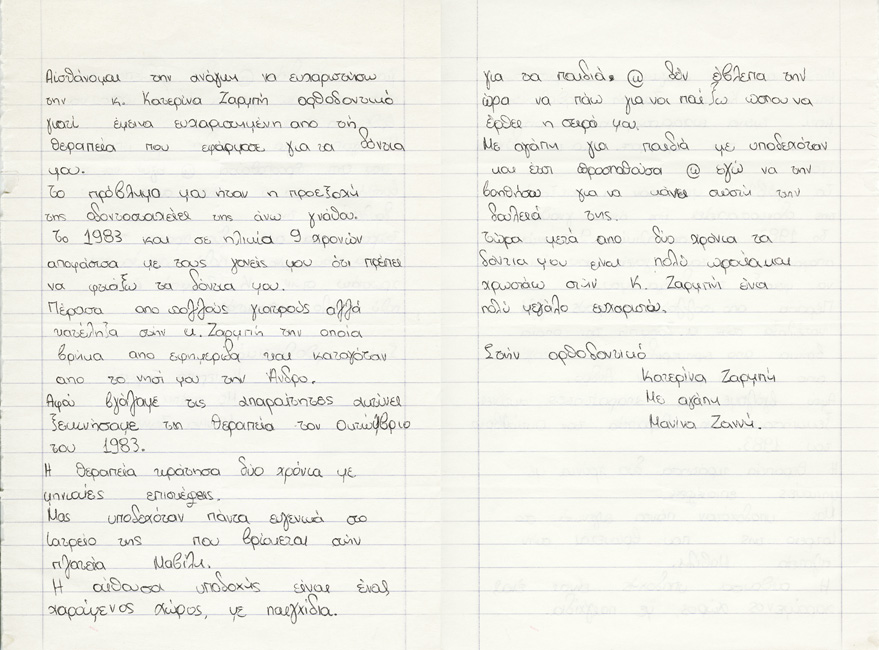 Αισθάνομαι την ανάγκη να ευχαριστήσω
την κ. Κατερίνα Ζαρμπή ορθοδοντικό
γιατί έμεινα ευχαριστημένη απο τη
θεραπεία που εφάρμοσε για τα δόντια
μου.
Το πρόβλημα μου ήταν η προεξοχή
της οδοντοστοιχίας της άνω γνάθου.
Το 1983 και σε ηλικία 9 χρονών
αποφάσισα με τους γονείς μου ότι πρέπει
να φτιάξω τα δόντια μου.
Πέρασα απο πολλούς γιατρούς αλλά
κατέληξα στην κ. Ζαρμπή την οποία
βρήκα απο εφημερίδα και καταγόταν
απο το νησί μου την Άνδρο.
Αφού βγάλαμε τις απαραίτητες ακτίνες
ξεκινήσαμε τη θεραπεία τον Οκτώβριο
του 1983.
Η θεραπεία κράτησε δύο χρόνια με
μηνιαίες επισκέψεις.
Μας υποδεχόταν πάντα ευγενικά στο
Ιατρείο της που βρίσκεται στην
πλατεία Μαβίλη.
Η αίθουσα υποδοχής είναι ένας
χαρούμενος χώρος, με παιχνίδια.
για τα παιδιά. @ δεν έβλεπα την
ώρα να πάω για να παίξω ώσπου να
έρθει η σειρά μου.
Με αγάπη για παιδιά με υποδεχόταν
και έτσι προσπαθούσα @ εγώ να την
βοηθήσω για να κάνει σωστή την
δουλειά της.
Τώρα μετά απο δύο χρόνια τα
δόντια μου είναι πολύ ωραία και
χρωστάω στην Κ. Ζαρμπή ένα
πολύ μεγάλο ευχαριστώ.
Στην ορθοδοντικό
Κατερίνα Ζαρμπή
Με αγάπη
Μανίνα Ζαννή.